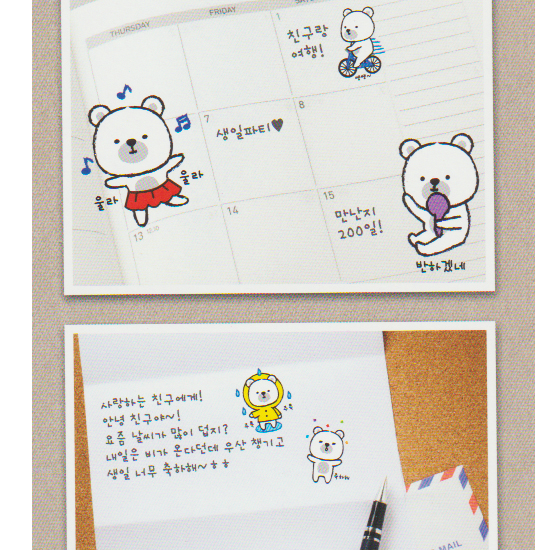 THURSDAY
FRIDAY
1
친구랑
여행!
7
생일파티♥
8
울라
울라
13
14
15
만난지
200일!
반하겠네
사랑하는 친구에게!
안녕 친구야~!
요즘 날씨가 많이 덥지?
내일은 비가 온다던데 우산 챙기고
생일 너무 축하해~ㅎㅎ
MAIL